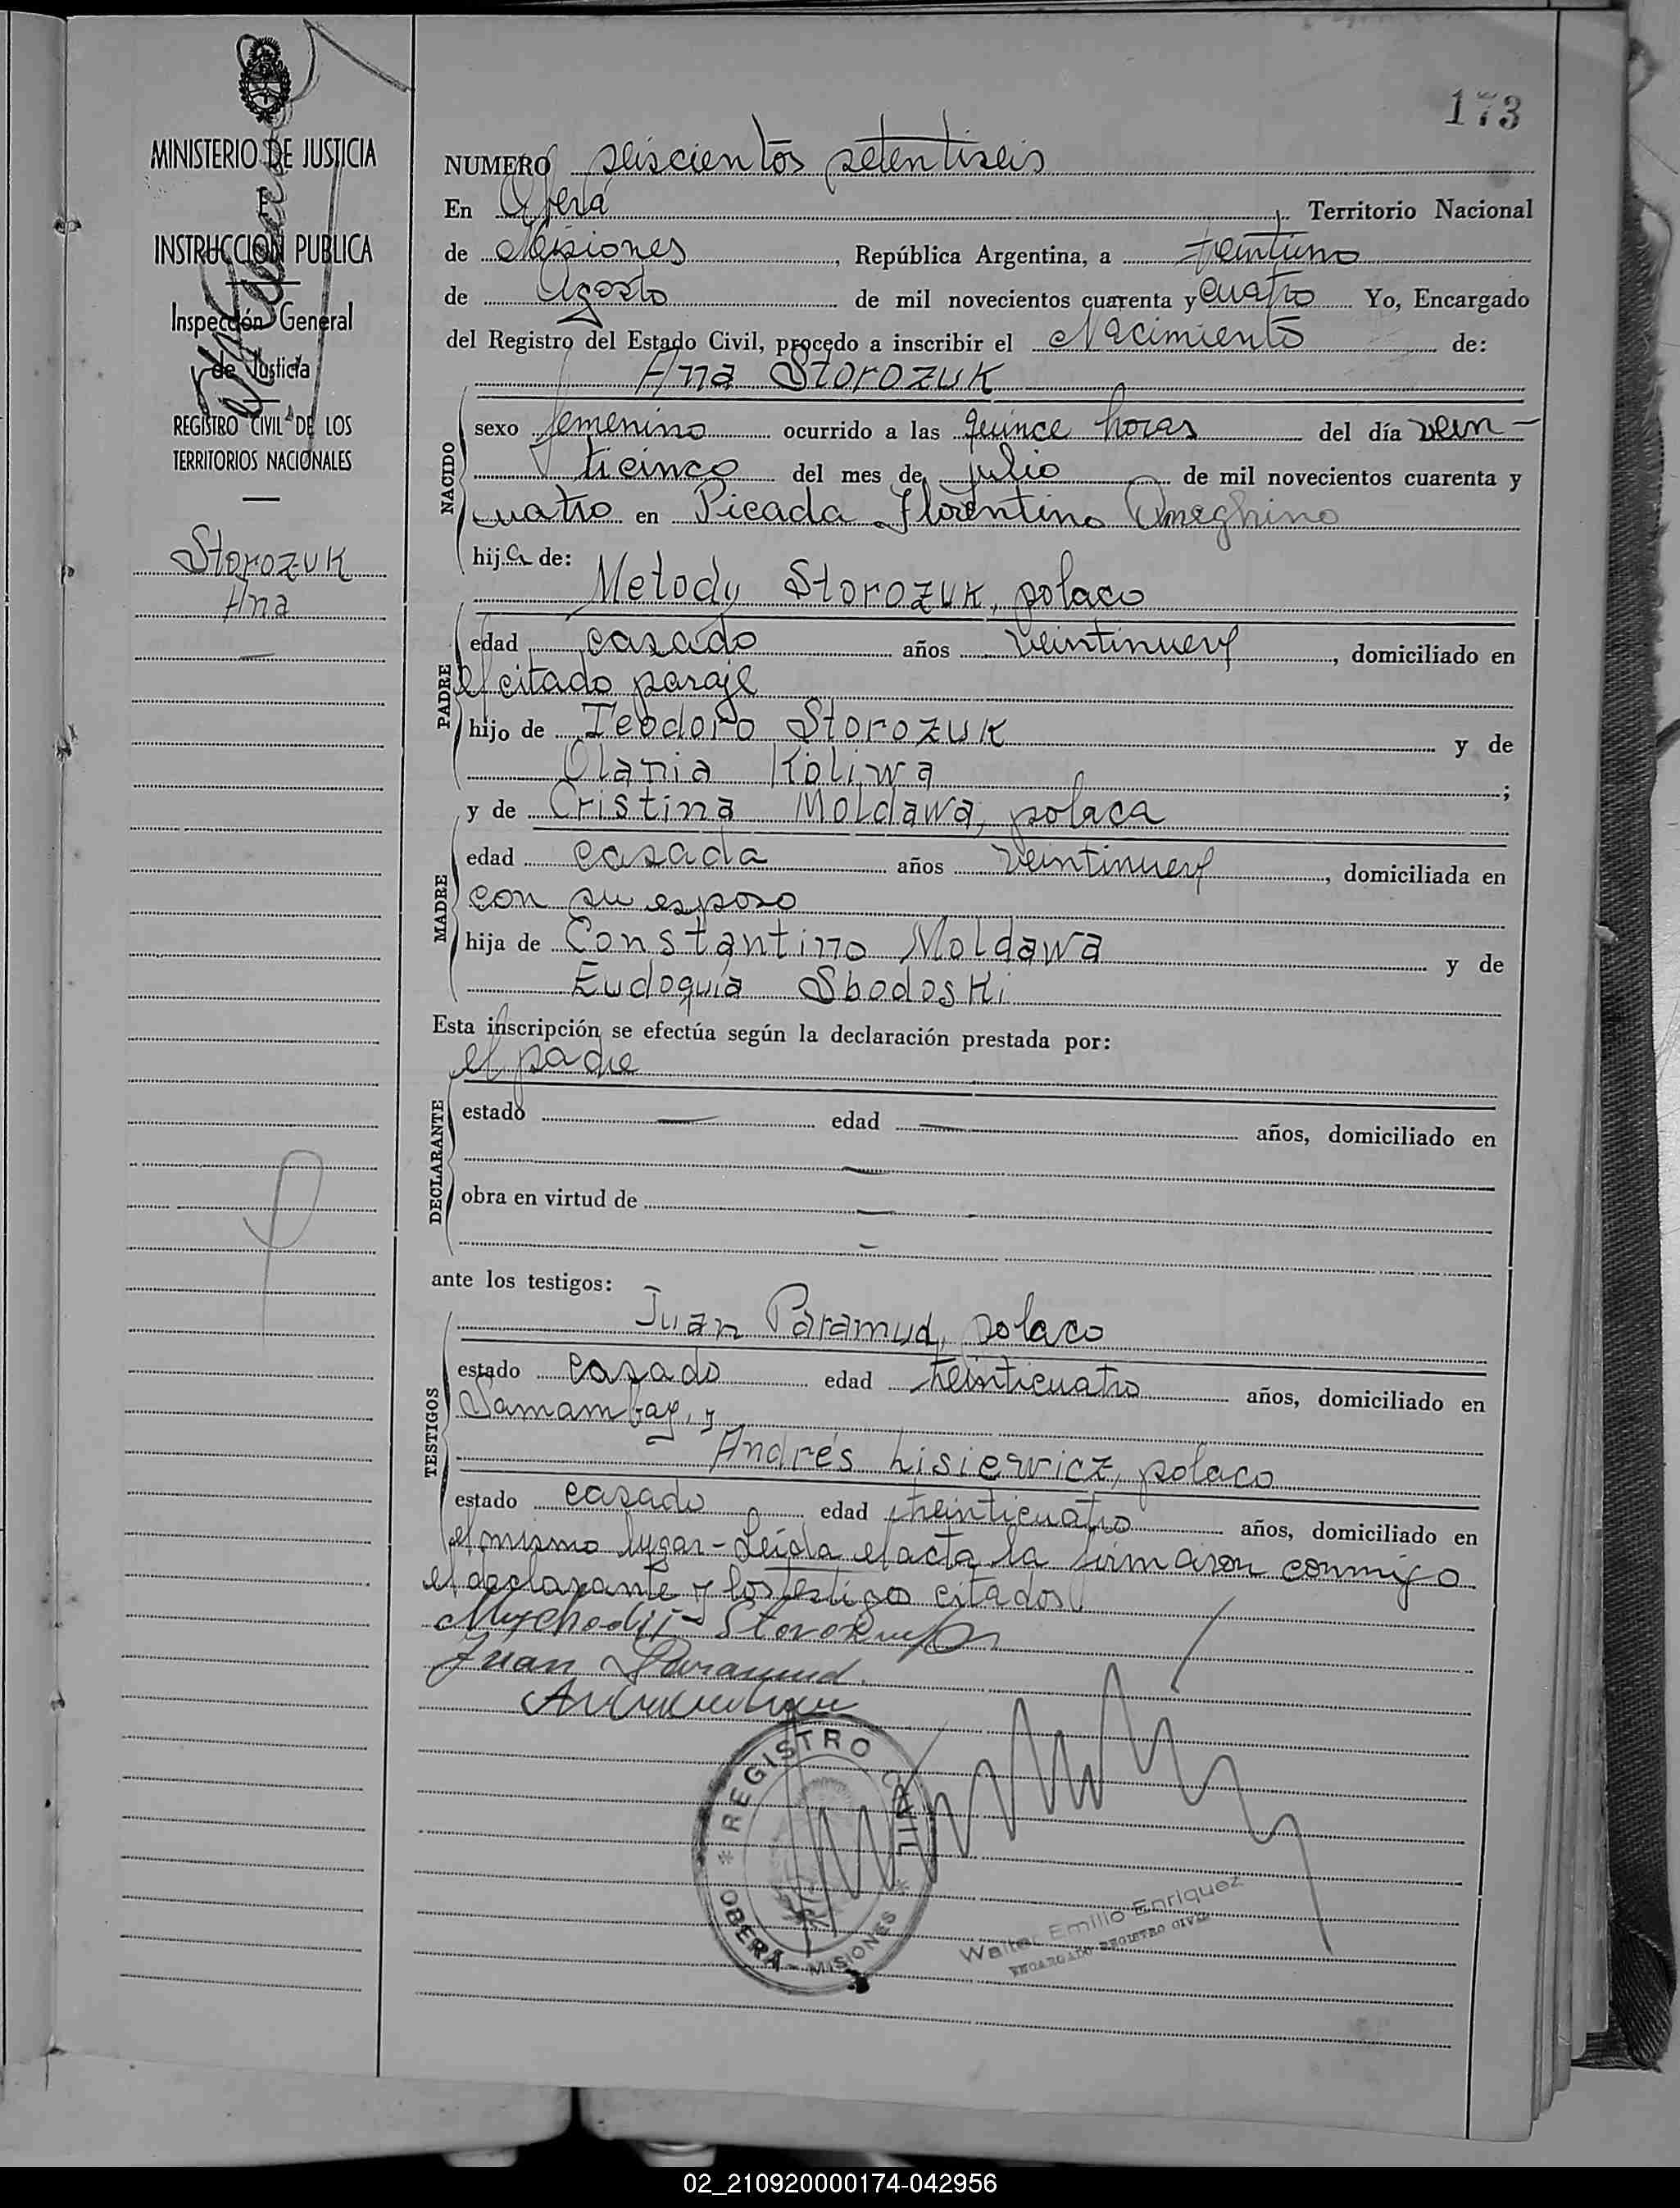 173
MINISTERIO DE JUSTICIA
E
INSTRUCCION PUBLICA
Inspección General
de Justicia
REGISTRO CIVIL DE LOS
TERRITORIOS NACIONALES
Storozuk
Ana
NUMERO seiscientos setentiseis
En Oberá, Territorio Nacional
de Misiones, República Argentina, a treintiuno
de Agosto de mil novecientos cuarenta y cuatro Yo, Encargado
del Registro del Estado Civil, procedo a inscribir el Nacimiento de:
Ana Storozuk
NACIDO
sexo femenino ocurrido a las quince horas del día vein-
ticinco del mes de julio de mil novecientos cuarenta y
cuatro en Picada Florentino Ameghino
hija de:
Metody Storozuk, polaco
PADRE
edad casado años veintinueve, domiciliado en
el citado paraje
hijo de Teodoro Storozuk y de
Olania Koliwa ;
y de Cristina Moldawa, polaca
MADRE
edad casada años veintinueve, domiciliada en
con su esposo
hija de Constantino Moldawa y de
Eudoquia Sbodoski
Esta inscripción se efectúa según la declaración prestada por:
el padre
DECLARANTE
estado — edad — años, domiciliado en
—
obra en virtud de —
—
ante los testigos:
Juan Paramud, polaco
TESTIGOS
estado casado edad treinticuatro años, domiciliado en
Samambay, y
Andrés Lisiewicz, polaco
estado casado edad treinticuatro años, domiciliado en
el mismo lugar - Leída el acta la firmaron conmigo
el declarante y los testigos citados
Juan Paramud.
REGISTRO CIVIL
OBERÁ - MISIONES
Walter Emilio Enriquez
ENCARGADO REGISTRO CIVIL
02_210920000174-042956